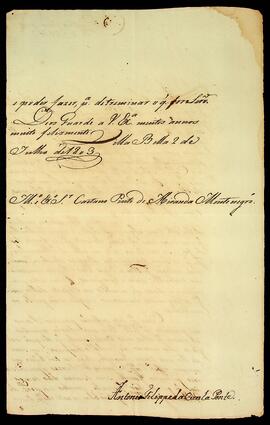 e poder fazer, q. determinar o q. for e
Deos Guarde a V. Exª muitos annos
muito felizmente Villa Bella 2 de
Julho de 1803
Illmº e Exº Sr. Caetano Pinto de Miranda Montenegro.
Antonio Felippe da Cunha Ponte.